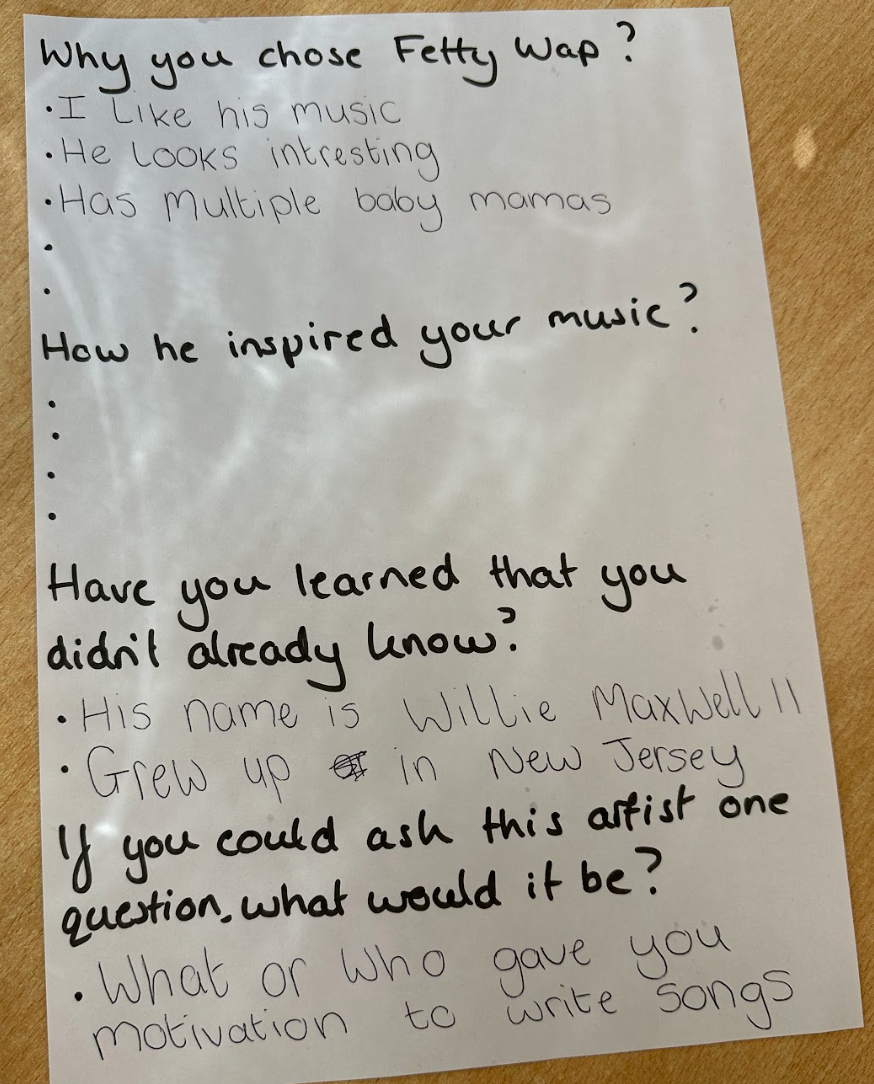 Why you chose Fetty Wap?
• I Like his music
• He Looks intresting
• Has Multiple baby mamas
•
•
How he inspired your music?
•
•
•
•
Have you learned that you
didn't already know?
• His name is Willie Maxwell II
• Grew up in New Jersey
If you could ask this artist one
question, what would it be?
• What or Who gave you
motivation to write songs